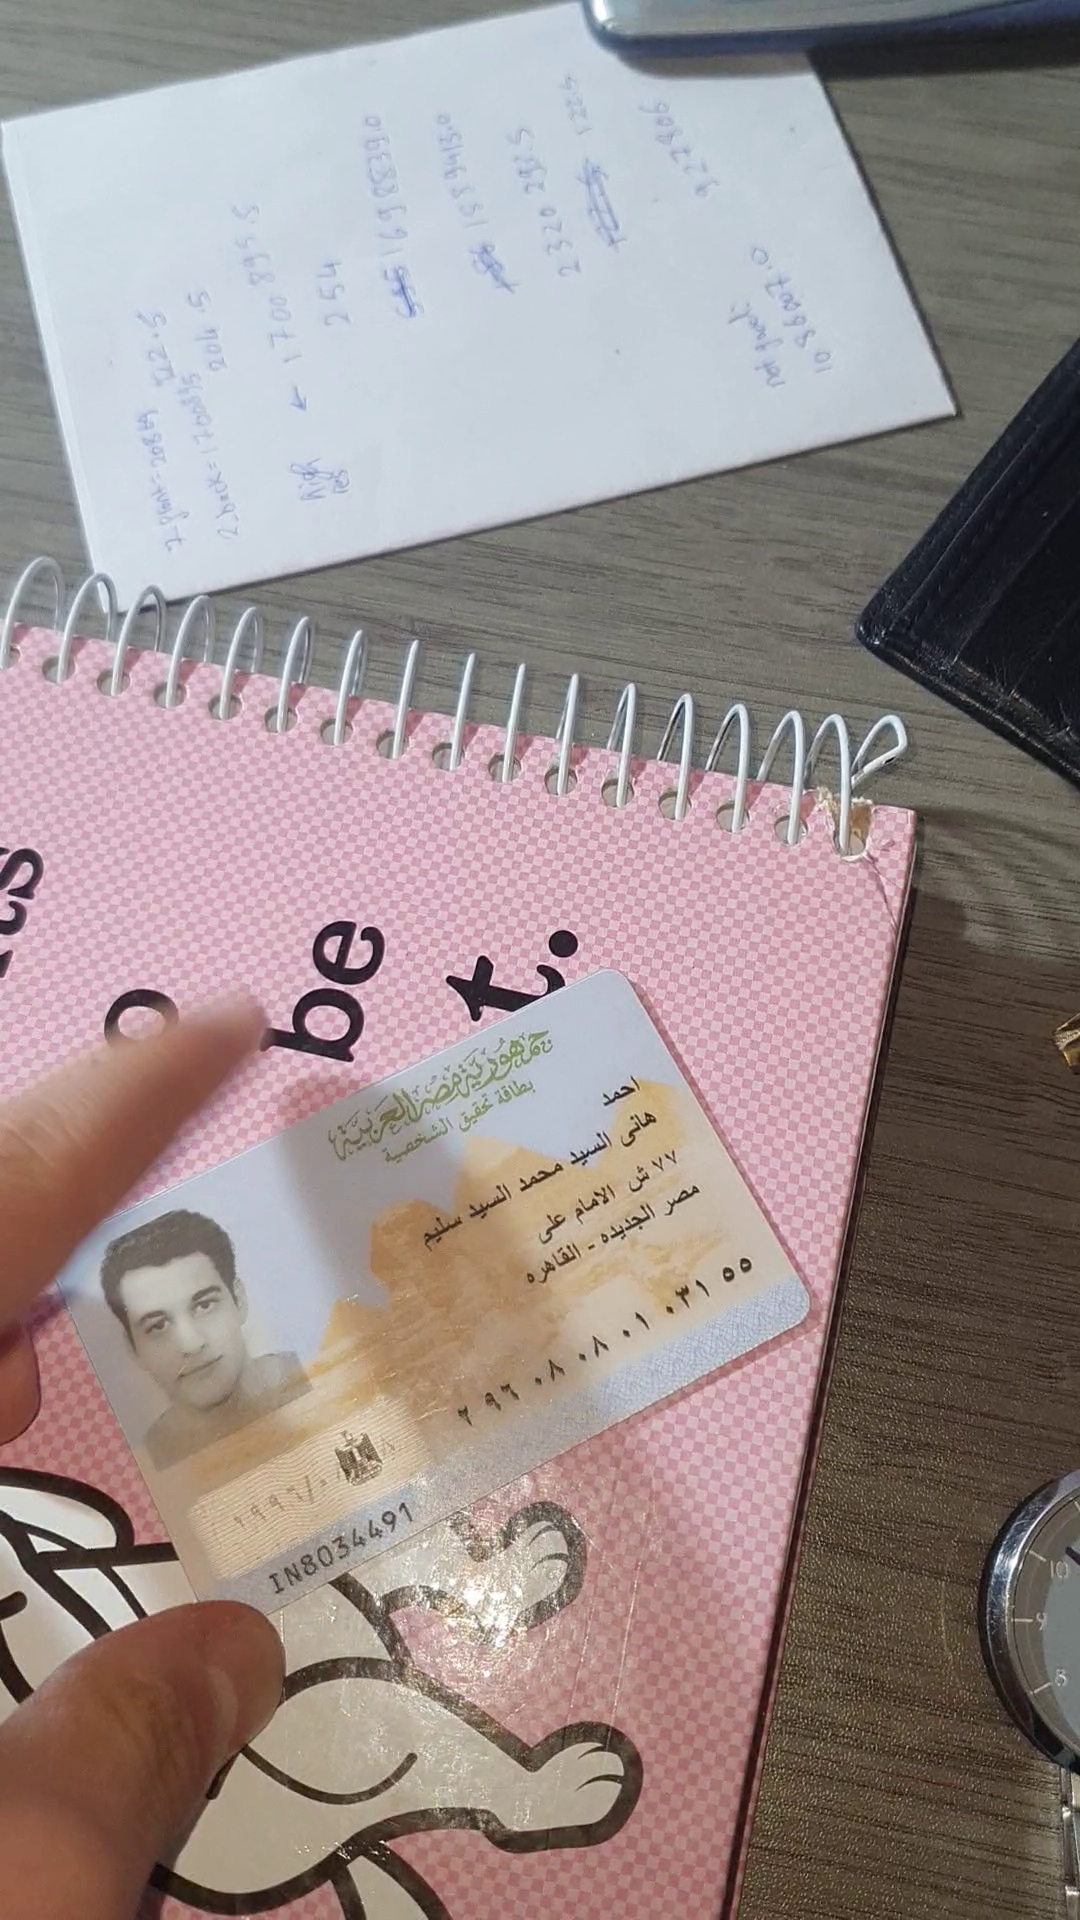 7.front=20849 522.5
2.back=1700895 204.5
high res ← 1700 895.5
254
1698839.0
1559413.0
2320 292.5
1225
922806
not front:
1086007.0
be
t.
جمهورية مصر العربية
بطاقة تحقيق الشخصية
احمد
هانى السيد محمد السيد سليم
٧٧ ش الامام على
مصر الجديده - القاهره
٢٩٦٠٨٠٨٠١٠٣١٥٥
IN8034491
10
9
8